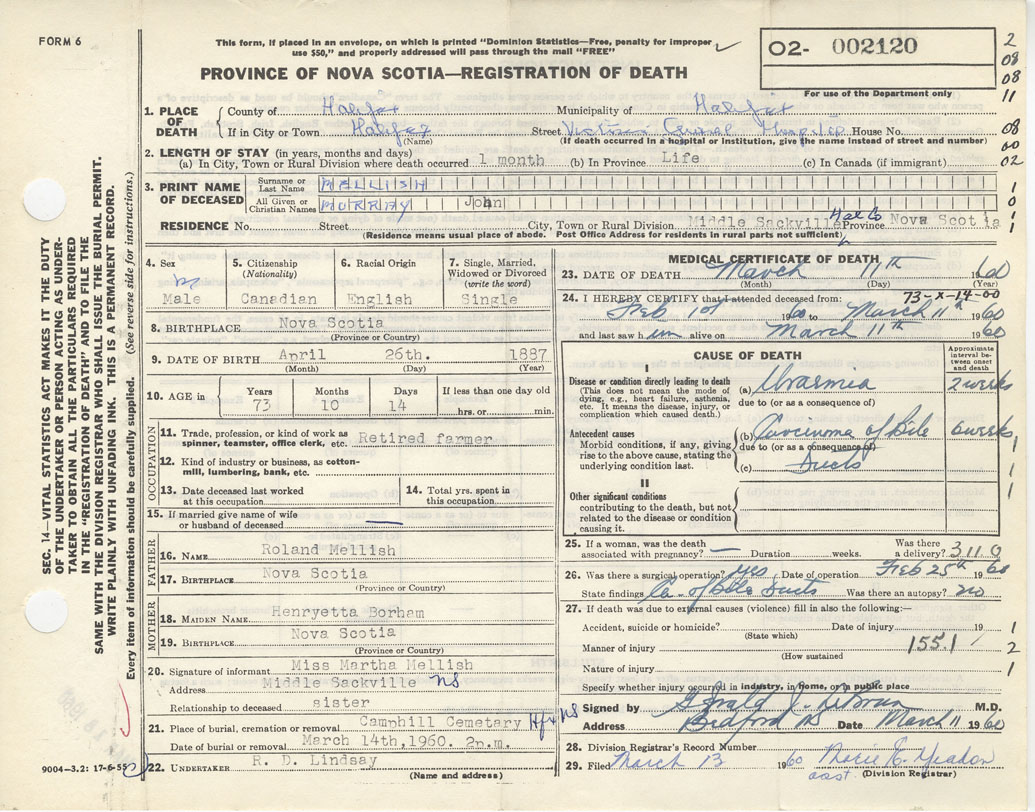 FORM 6
This form, if placed in an envelope, on which is printed "Dominion Statistics—Free, penalty for improper
use $50," and properly addressed will pass through the mail "FREE"
PROVINCE OF NOVA SCOTIA—REGISTRATION OF DEATH
O2- 002120
For use of the Department only
2
08
08
11
08
00
02
1
0
1
1
1. PLACE OF DEATH
County of Halifax Municipality of Halifax
If in City or Town Halifax Street Victoria General Hospital House No.
(Name) (If death occurred in a hospital or institution, give the name instead of street and number)
2. LENGTH OF STAY (in years, months and days)
(a) In City, Town or Rural Division where death occurred 1 month (b) In Province Life (c) In Canada (if immigrant)
3. PRINT NAME OF DECEASED
Surname or Last Name MELLISH
All Given or Christian Names MURRAY John
RESIDENCE No. Street City, Town or Rural Division Middle Sackville Hal Co Province Nova Scotia
(Residence means usual place of abode. Post Office Address for residents in rural parts not sufficient)
4. Sex
m
Male
5. Citizenship
(Nationality)
Canadian
6. Racial Origin
English
7. Single, Married,
Widowed or Divorced
(write the word)
Single
8. BIRTHPLACE Nova Scotia
(Province or Country)
9. DATE OF BIRTH April 26th. 1887
(Month) (Day) (Year)
10. AGE in
Years Months Days If less than one day old
73 10 14 hrs. or min.
OCCUPATION
11. Trade, profession, or kind of work as
spinner, teamster, office clerk, etc. Retired farmer
12. Kind of industry or business, as cotton-
mill, lumbering, bank, etc.
13. Date deceased last worked
at this occupation
14. Total yrs. spent in
this occupation
15. If married give name of wife
or husband of deceased —
FATHER
16. NAME Roland Mellish
17. BIRTHPLACE Nova Scotia
(Province or Country)
MOTHER
18. MAIDEN NAME Henryetta Borham
19. BIRTHPLACE Nova Scotia
(Province or Country)
20. Signature of informant Miss Martha Mellish
Address Middle Sackville NS
Relationship to deceased sister
21. Place of burial, cremation or removal Camphill Cemetary Hfx NS
Date of burial or removal March 14th,1960. 2p.m.
22. UNDERTAKER R. D. Lindsay
(Name and address)
9004—3.2: 17-6-55
MEDICAL CERTIFICATE OF DEATH
23. DATE OF DEATH March 11th 1960
(Month) (Day) (Year)
24. I HEREBY CERTIFY that I attended deceased from: 73-X-14-00
Feb 1st 1960 to March 11th 1960
and last saw him alive on March 11th 1960
CAUSE OF DEATH
Approximate
interval be-
tween onset
and death
I
Disease or condition directly leading to death
(This does not mean the mode of
dying, e.g., heart failure, asthenia,
etc. It means the disease, injury, or
complication which caused death.)
(a) Uraemia 2 weeks
due to (or as a consequence of)
Antecedent causes
Morbid conditions, if any, giving
rise to the above cause, stating the
underlying condition last.
(b) Carcinoma of Bile 6 weeks
due to (or as a consequence of)
(c) Ducts
1
1
1
II
Other significant conditions
contributing to the death, but not
related to the disease or condition
causing it.
25. If a woman, was the death
associated with pregnancy? — Duration weeks. Was there
a delivery? 311.0
26. Was there a surgical operation? yes Date of operation Feb 25th 1960
State findings Ca. of bile ducts Was there an autopsy? no
27. If death was due to external causes (violence) fill in also the following:—
Accident, suicide or homicide? Date of injury 19 1
(State which)
Manner of injury 155.1 2
(How sustained
Nature of injury 1
Specify whether injury occurred in industry, in home, or in public place
Signed by M.D.
Address Bedford NS Date March 11 1960
28. Division Registrar's Record Number
29. Filed March 13 1960 Marie E.
asst. (Division Registrar)
SEC. 14—VITAL STATISTICS ACT MAKES IT THE DUTY
OF THE UNDERTAKER OR PERSON ACTING AS UNDER-
TAKER TO OBTAIN ALL THE PARTICULARS REQUIRED
IN THE "REGISTRATION OF DEATH" AND TO FILE THE
SAME WITH THE DIVISION REGISTRAR WHO SHALL ISSUE THE BURIAL PERMIT.
WRITE PLAINLY WITH UNFADING INK. THIS IS A PERMANENT RECORD.
Every item of information should be carefully supplied. (See reverse side for instructions.)